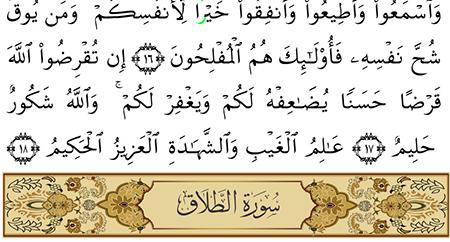 وَٱسْمَعُوا۟ وَأَطِيعُوا۟ وَأَنفِقُوا۟ خَيْرًا لِّأَنفُسِكُمْ ۗ وَمَن يُوقَ
شُحَّ نَفْسِهِۦ فَأُو۟لَـٰٓئِكَ هُمُ ٱلْمُفْلِحُونَ ﴿١٦﴾ إِن تُقْرِضُوا۟ ٱللَّهَ
قَرْضًا حَسَنًا يُضَـٰعِفْهُ لَكُمْ وَيَغْفِرْ لَكُمْ ۚ وَٱللَّهُ شَكُورٌ
حَلِيمٌ ﴿١٧﴾ عَـٰلِمُ ٱلْغَيْبِ وَٱلشَّهَـٰدَةِ ٱلْعَزِيزُ ٱلْحَكِيمُ ﴿١٨﴾
سُورَةُ الطَّلَاقِ